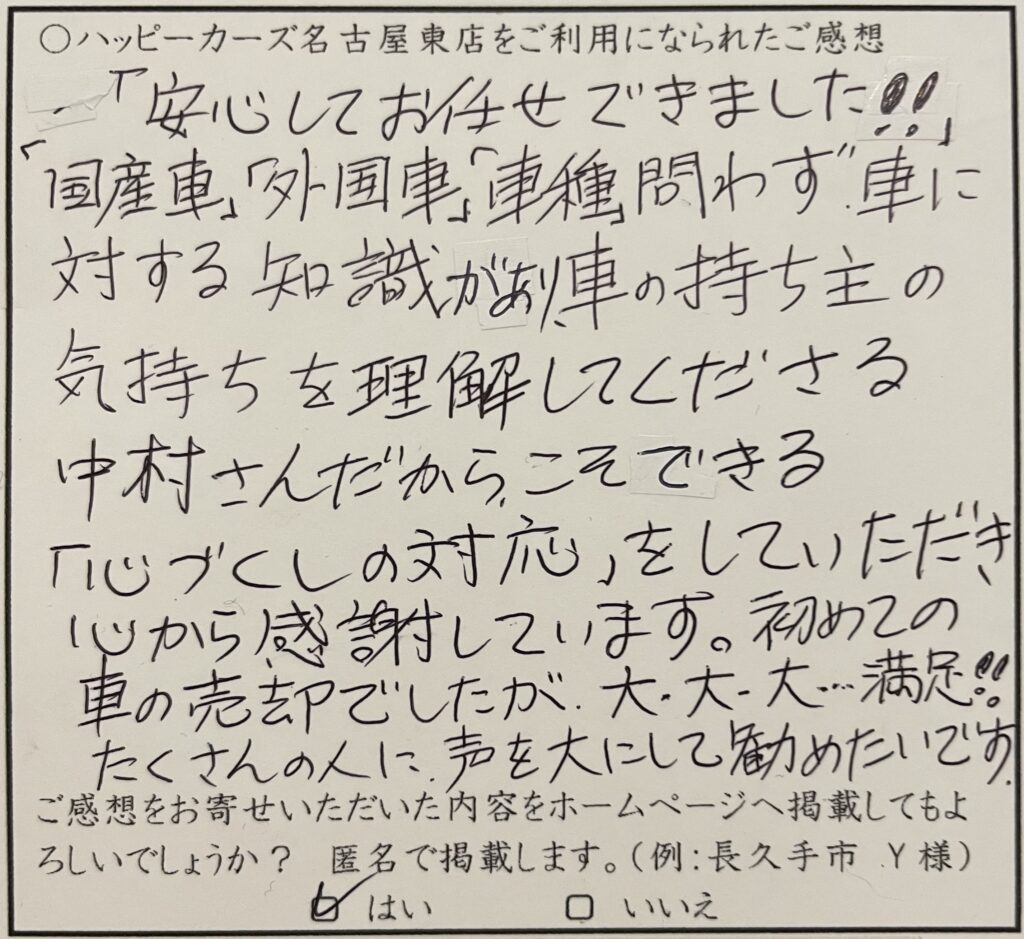 ○ハッピーカーズ名古屋東店をご利用になられたご感想
「安心してお任せできました!!」
「国産車」「外国車」「車種」問わず、車に
対する知識があり、車の持ち主の
気持ちを理解してくださる
中村さんだから、こそできる
「心づくしの対応」をしていただき
心から感謝しています。初めての
車の売却でしたが、大・大・大…満足!!
たくさんの人に、声を大にして勧めたいです。
ご感想をお寄せいただいた内容をホームページへ掲載してもよ
ろしいでしょうか? 匿名で掲載します。(例:長久手市 Y様)
☑ はい □ いいえ